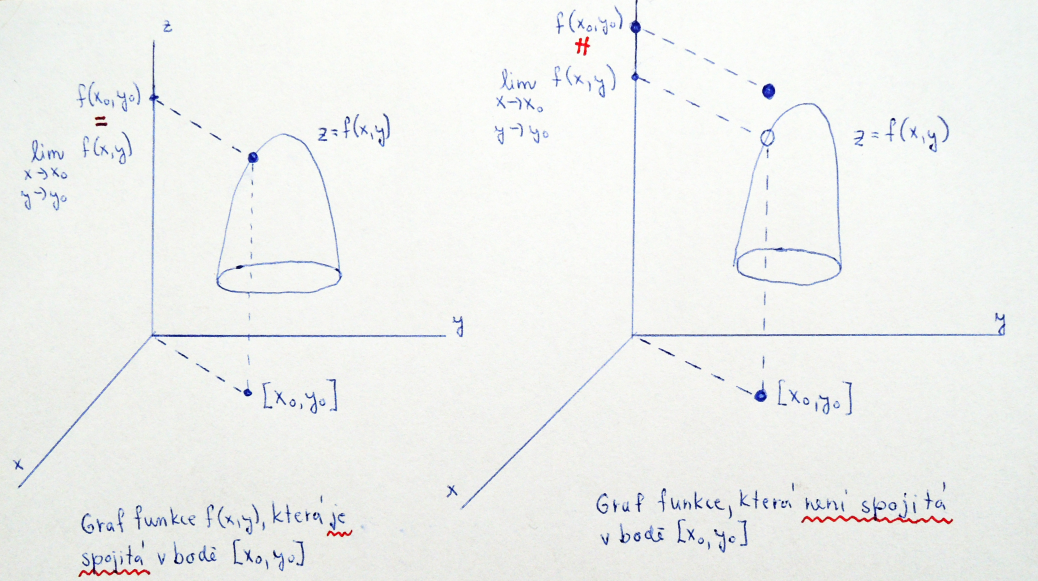 z
f(x₀,y₀)
=
lim f(x,y)
x→x₀
y→y₀
z=f(x,y)
y
[x₀,y₀]
x
Graf funkce f(x,y), která je
spojitá v bodě [x₀,y₀]
f(x₀,y₀)
≠
lim f(x,y)
x→x₀
y→y₀
z=f(x,y)
y
[x₀,y₀]
x
Graf funkce, která není spojitá
v bodě [x₀,y₀]